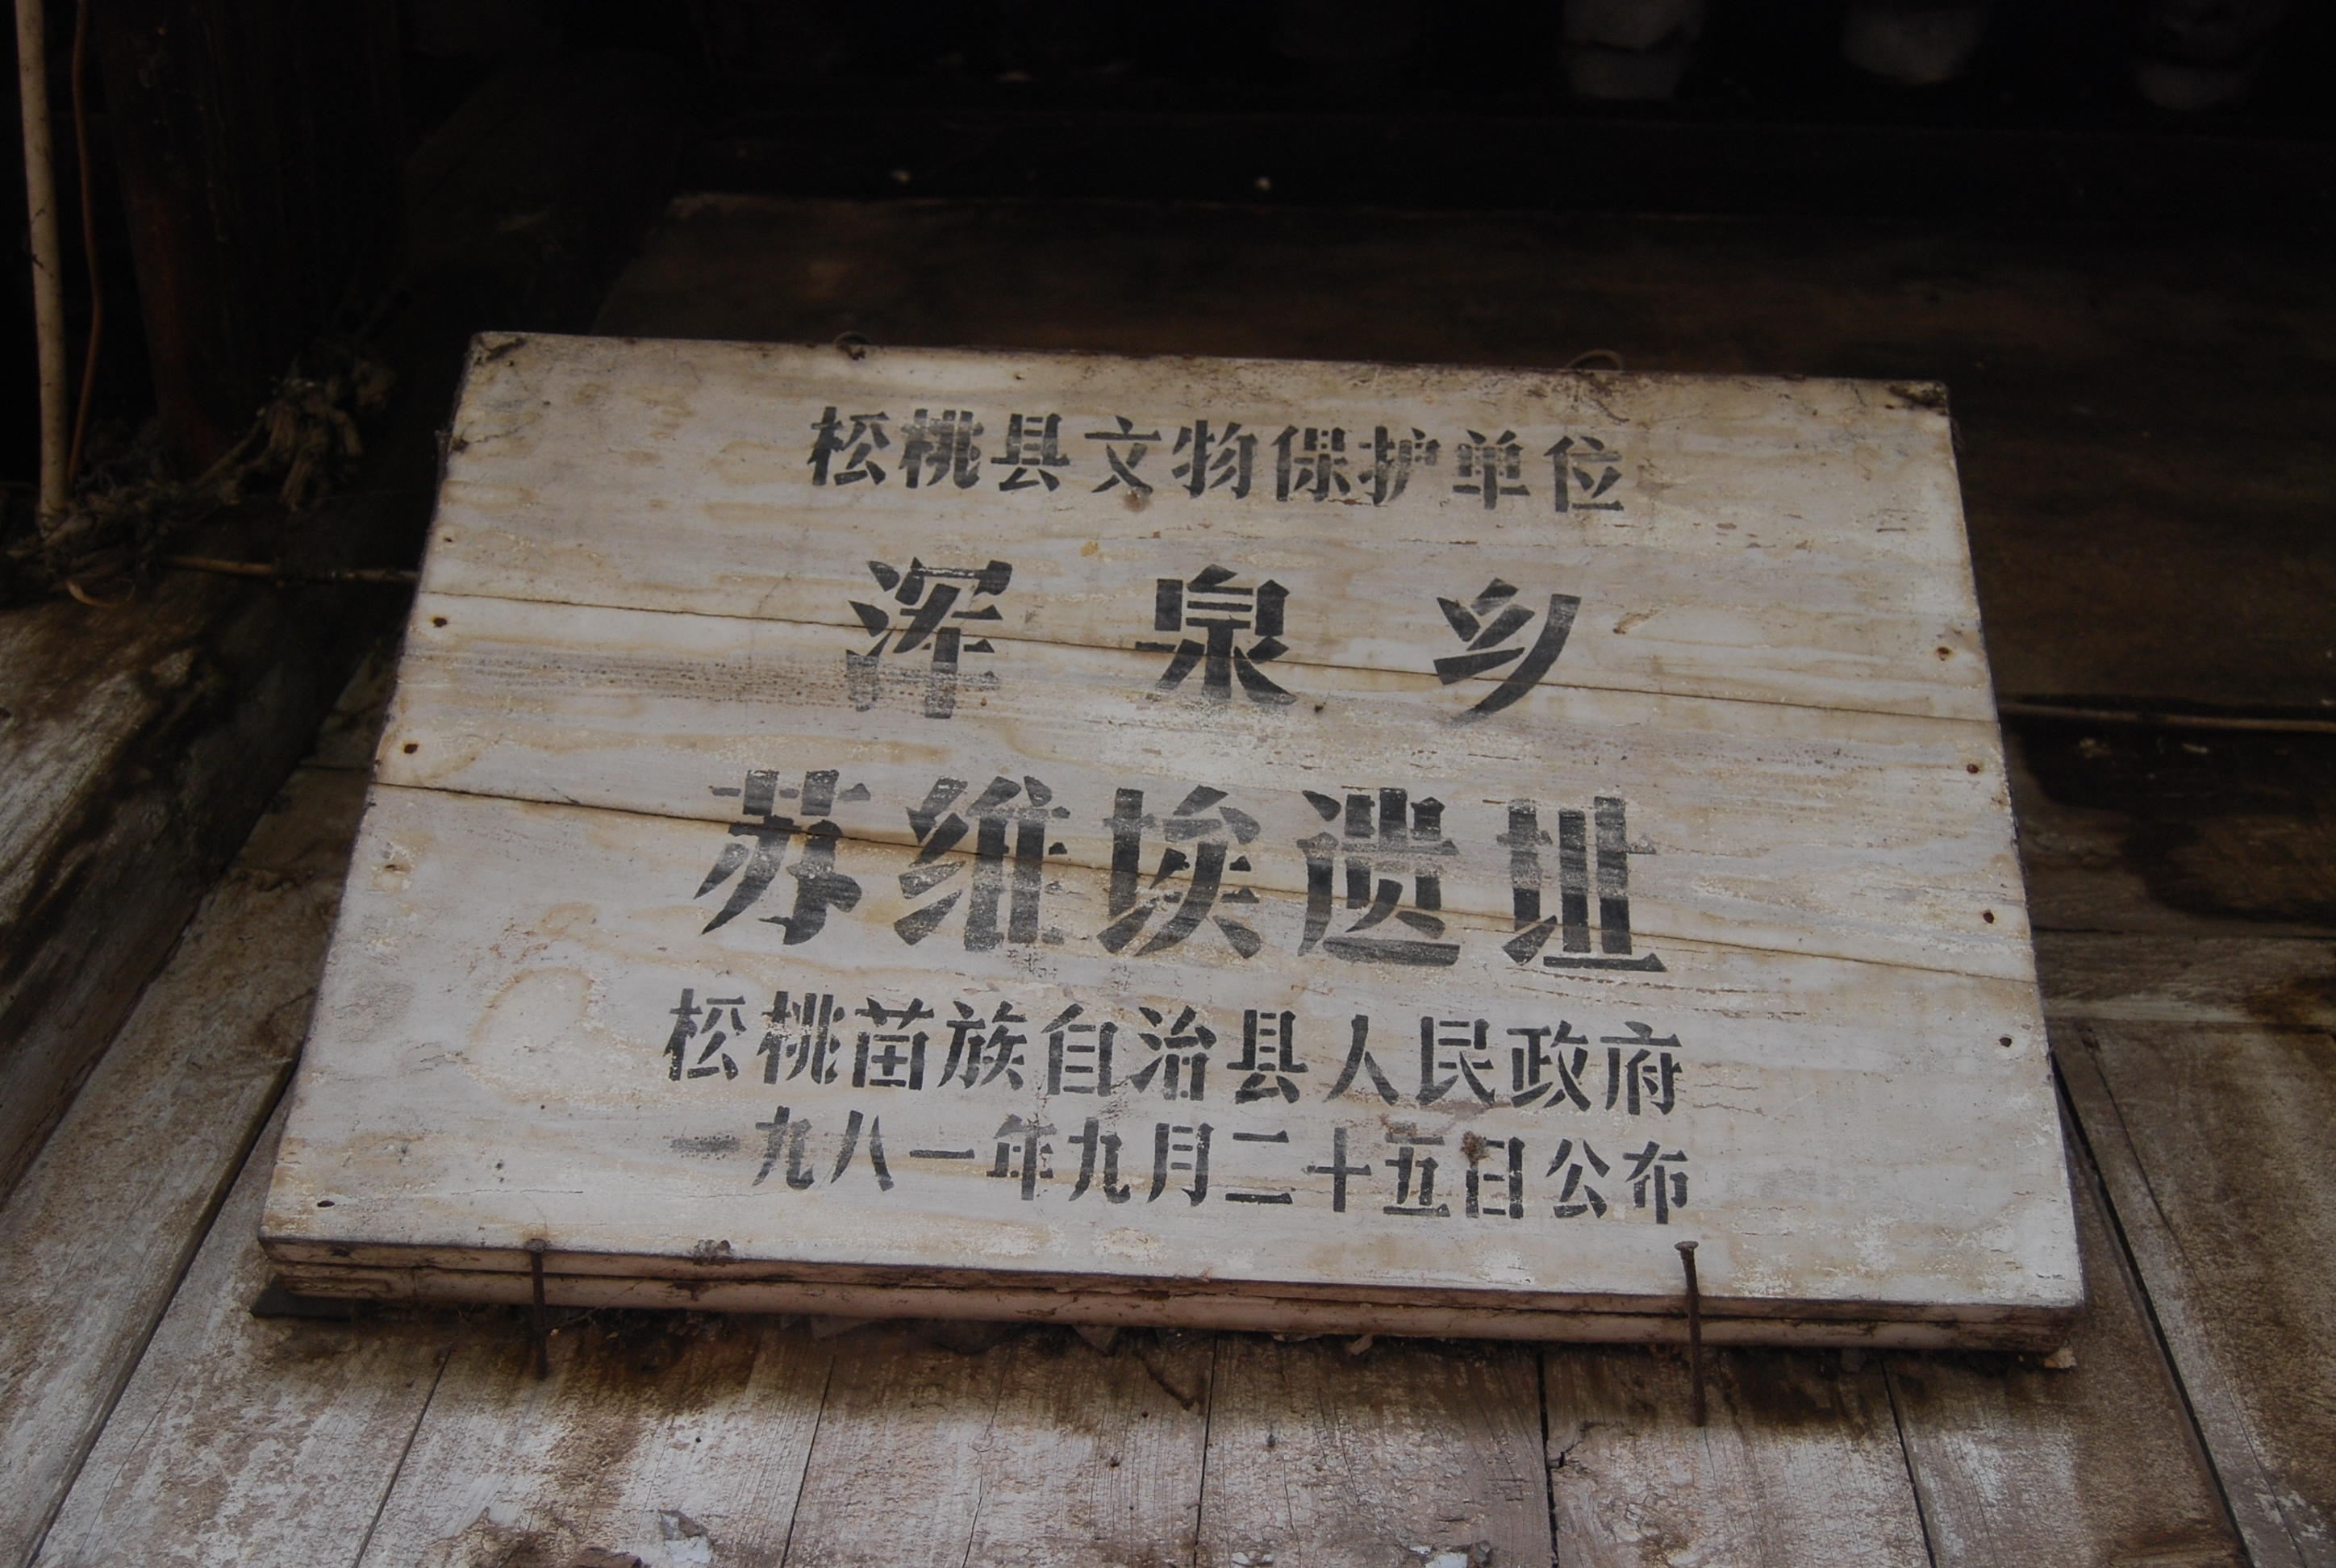 松桃县文物保护单位
浑泉乡
苏维埃遗址
松桃苗族自治县人民政府
一九八一年九月二十五日公布